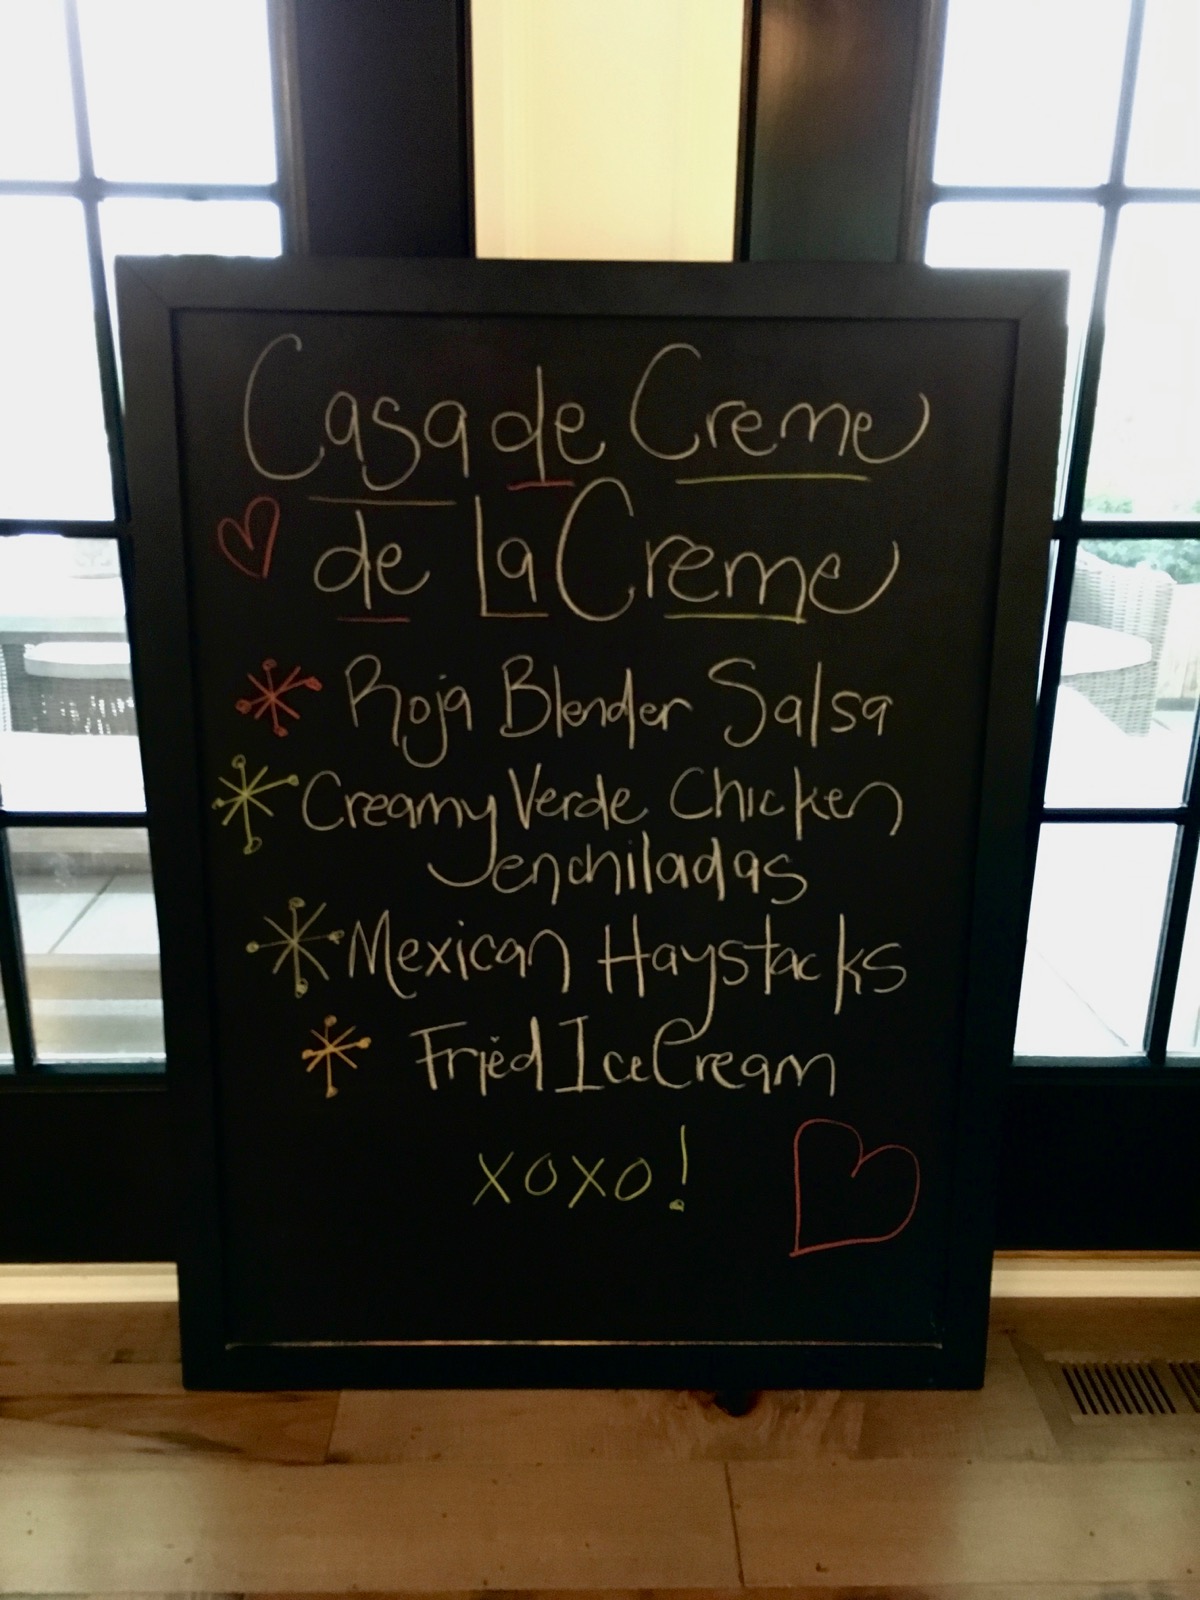 Casa de Creme
de La Creme
Roja Blender Salsa
Creamy Verde Chicken
enchiladas
Mexican Haystacks
Fried Ice Cream
xoxo!